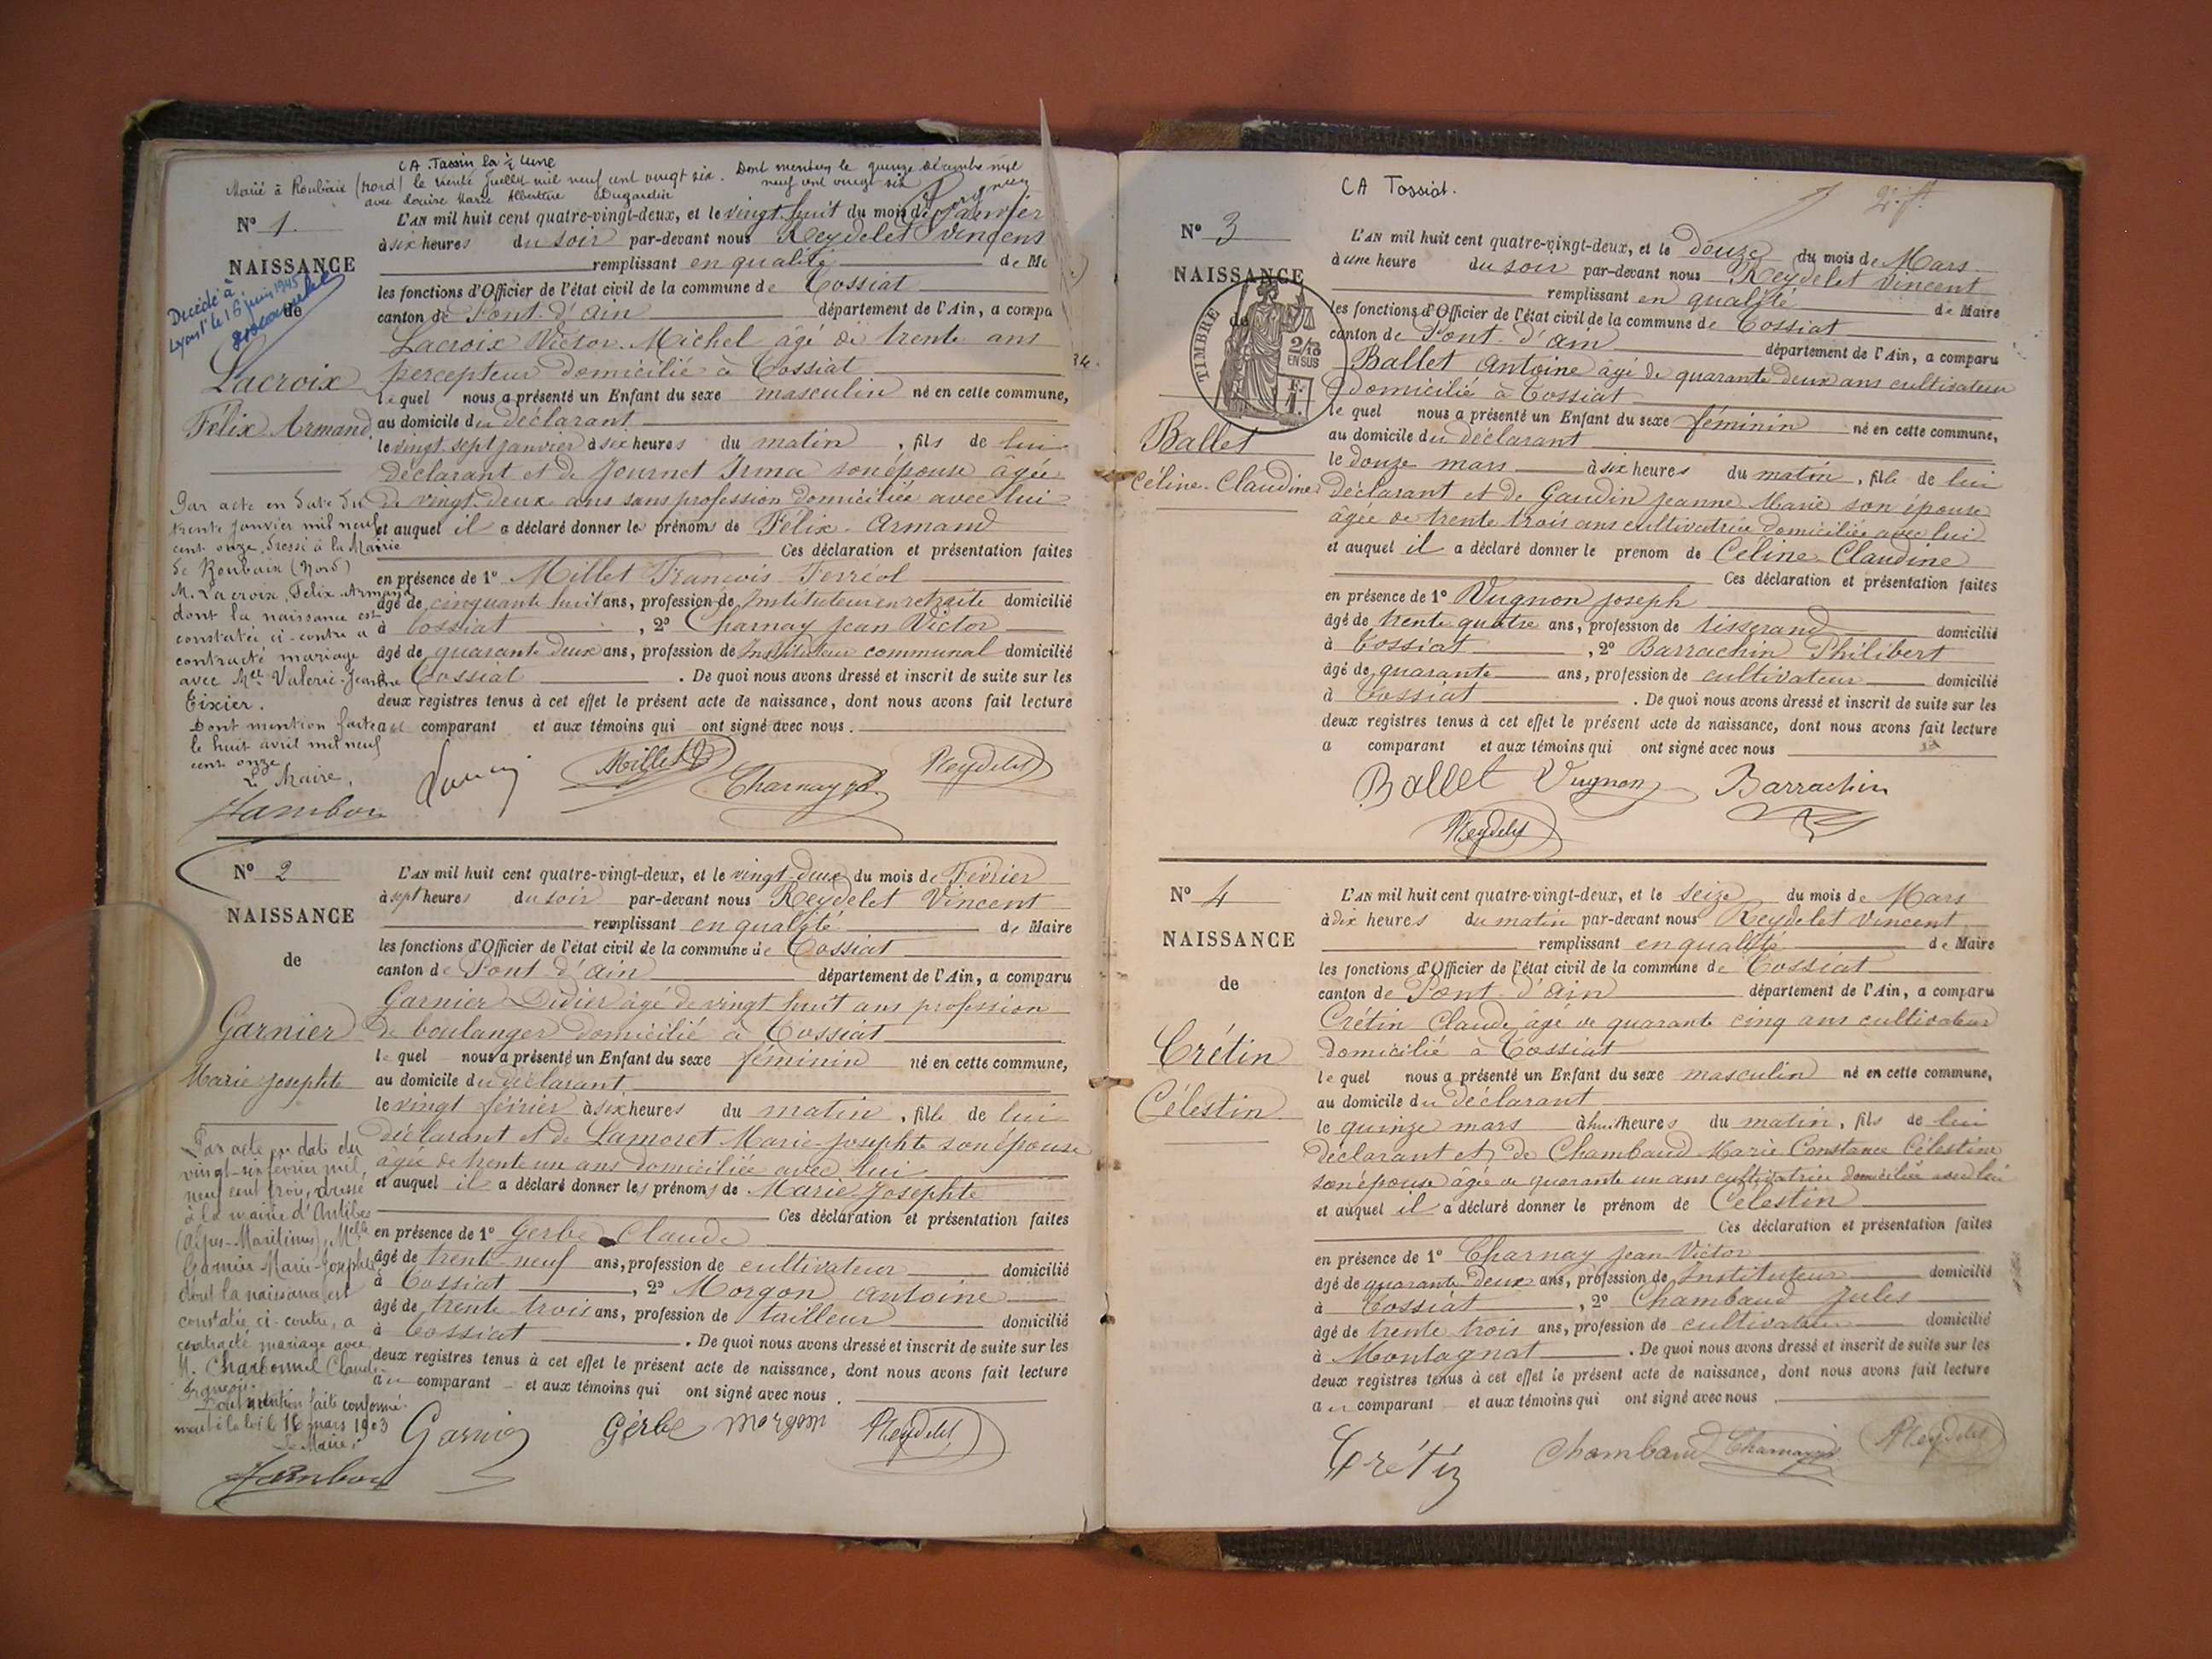 CA. Tassin la ½ Lune
Marié à Roubaix (Nord) le trente Juillet mil neuf cent vingt six. Dont mention le quinze décembre mil
avec Louise Marie Albertine Dugardin neuf cent vingt six
N° 1.
NAISSANCE
de
Décédé à
Lyon 1er le 16 juin 1945
Lacroix
Félix Armand
L'AN mil huit cent quatre-vingt-deux, et le vingt huit du mois de Janvier
à six heures du soir par-devant nous Reydelet Vincent
remplissant en qualité de Ma
les fonctions d'Officier de l'état civil de la commune de Tossiat
canton de Pont-d'ain département de l'Ain, a compa
Lacroix Victor Michel âgé de trente ans
percepteur domicilié à Tossiat
lequel nous a présenté un Enfant du sexe masculin né en cette commune,
au domicile du déclarant
le vingt sept janvier à six heures du matin, fils de lui
déclarant et de Journet Irma son épouse âgée
de vingt deux ans sans profession domiciliée avec lui
et auquel il a déclaré donner les prénoms de Félix-Armand
Ces déclaration et présentation faites
en présence de 1° Millet François Ferréol
âgé de cinquante huit ans, profession de Instituteur en retraite domicilié
à Tossiat, 2° Charnay Jean Victor
âgé de quarante deux ans, profession de Instituteur communal domicilié
à Tossiat. De quoi nous avons dressé et inscrit de suite sur les
deux registres tenus à cet effet le présent acte de naissance, dont nous avons fait lecture
au comparant et aux témoins qui ont signé avec nous.
Par acte en date du
trente Janvier mil neuf
cent onze, dressé à la Mairie
de Roubaix (Nord)
M. Lacroix, Felix-Armand
dont la naissance est
constatée ci-contre a
contracté mariage
avec Melle Valerie-Jeanne
Tixier.
Dont mention faite
le huit avril mil neuf
cent onze
Le Maire,
Millet Charnay Reydelet
N° 2
NAISSANCE
de
Garnier
Marie Josephte
L'AN mil huit cent quatre-vingt-deux, et le vingt-deux du mois de Février
à sept heures du soir par-devant nous Reydelet Vincent
remplissant en qualité de Maire
les fonctions d'Officier de l'état civil de la commune de Tossiat
canton de Pont-d'ain département de l'Ain, a comparu
Garnier Didier âgé de vingt huit ans profession
de boulanger domicilié à Tossiat
lequel nous a présenté un Enfant du sexe féminin né en cette commune,
au domicile du déclarant
le vingt février à six heures du matin, fille de lui
déclarant et de Lamoret Marie-Josephte son épouse
âgée de trente un ans domiciliée avec lui
et auquel il a déclaré donner les prénoms de Marie Josephte
Ces déclaration et présentation faites
en présence de 1° Gerbe Claude
âgé de trente-neuf ans, profession de cultivateur domicilié
à Tossiat, 2° Morgon antoine
âgé de trente trois ans, profession de tailleur domicilié
à Tossiat. De quoi nous avons dressé et inscrit de suite sur les
deux registres tenus à cet effet le présent acte de naissance, dont nous avons fait lecture
au comparant et aux témoins qui ont signé avec nous.
Par acte en date du
vingt-six février mil
neuf cent trois, dressé
à la mairie d'Antibes
(Alpes-Maritimes), Melle
Garnier Marie-Josephte
dont la naissance est
constatée ci-contre, a
contracté mariage avec
M. Charbonnel Claude
François.
Dont mention faite conformé-
ment à la loi le 16 mars 1903
Le Maire
Garnier Gerbe morgon Reydelet
CA Tossiat.
N° 3
NAISSANCE
de
TIMBRE
2/10
EN SUS
Ballet
Céline-Claudine
L'AN mil huit cent quatre-vingt-deux, et le douze du mois de Mars
à une heure du soir par-devant nous Reydelet Vincent
remplissant en qualité de Maire
les fonctions d'Officier de l'état civil de la commune de Tossiat
canton de Pont-d'ain département de l'Ain, a comparu
Ballet Antoine âgé de quarante deux ans cultivateur
domicilié à Tossiat
lequel nous a présenté un Enfant du sexe féminin né en cette commune,
au domicile du déclarant
le douze mars à six heures du matin, fille de lui
déclarant et de Gaudin Jeanne Marie son épouse
âgée de trente trois ans cultivatrice domiciliée avec lui
et auquel il a déclaré donner le prenom de Céline-Claudine
Ces déclaration et présentation faites
en présence de 1° Vugnon joseph
âgé de trente quatre ans, profession de tisserand domicilié
à Tossiat, 2° Barrachin Philibert
âgé de quarante ans, profession de cultivateur domicilié
à Tossiat. De quoi nous avons dressé et inscrit de suite sur les
deux registres tenus à cet effet le présent acte de naissance, dont nous avons fait lecture
a comparant et aux témoins qui ont signé avec nous
Ballet Vugnon Barrachin
Reydelet
N° 4
NAISSANCE
de
Crétin
Célestin
L'AN mil huit cent quatre-vingt-deux, et le seize du mois de Mars
à dix heures du matin par-devant nous Reydelet Vincent
remplissant en qualité de Maire
les fonctions d'Officier de l'état civil de la commune de Tossiat
canton de Pont-d'ain département de l'Ain, a comparu
Crétin Claude âgé de quarante cinq ans cultivateur
domicilié à Tossiat
lequel nous a présenté un Enfant du sexe masculin né en cette commune,
au domicile du déclarant
le quinze mars à huit heures du matin, fils de lui
déclarant et de Chambaud Marie Constance Célestine
son épouse âgée de quarante un ans cultivatrice domiciliée avec lui
et auquel il a déclaré donner le prénom de Célestin
Ces déclaration et présentation faites
en présence de 1° Charnay Jean Victor
âgé de quarante-deux ans, profession de Instituteur domicilié
à Tossiat, 2° Chambaud Jules
âgé de trente trois ans, profession de cultivateur domicilié
à Montagnat. De quoi nous avons dressé et inscrit de suite sur les
deux registres tenus à cet effet le présent acte de naissance, dont nous avons fait lecture
au comparant et aux témoins qui ont signé avec nous
Crétin Chambaud Charnay Reydelet